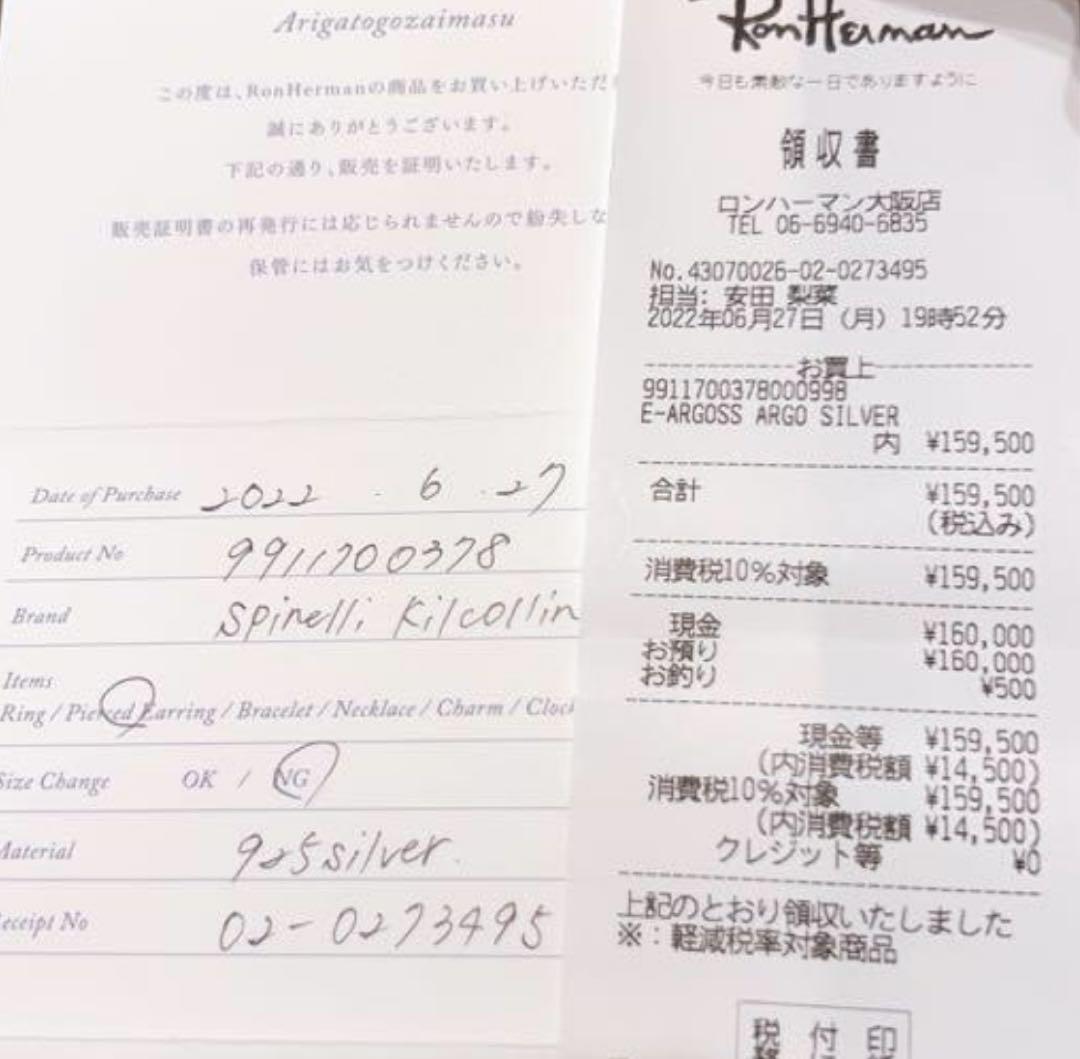 Arigatogozaimasu
この度は、RonHermanの商品をお買い上げいただ
誠にありがとうございます。
下記の通り、販売を証明いたします。
販売証明書の再発行には応じられませんので紛失しな
保管にはお気をつけください。
Date of Purchase 2022 . 6 . 27
Product No 9911700378
Brand Spinelli Kilcollin
Items
Ring / Pierced Earring / Bracelet / Necklace / Charm / Clock
Size Change OK / NG
Material 925silver.
Receipt No 02-0273495
RonHerman
今日も素敵な一日でありますように
領収書
ロンハーマン大阪店
TEL 06-6940-6835
No.43070026-02-0273495
担当: 安田 梨菜
2022年06月27日 (月) 19時52分
お買上
9911700378000998
E-ARGOSS ARGO SILVER
内 ¥159,500
合計 ¥159,500
(税込み)
消費税10%対象 ¥159,500
現金 ¥160,000
お預り ¥160,000
お釣り ¥500
現金等 ¥159,500
(内消費税額 ¥14,500)
消費税10%対象 ¥159,500
(内消費税額 ¥14,500)
クレジット等 ¥0
上記のとおり領収いたしました
※:軽減税率対象商品
税 付 印